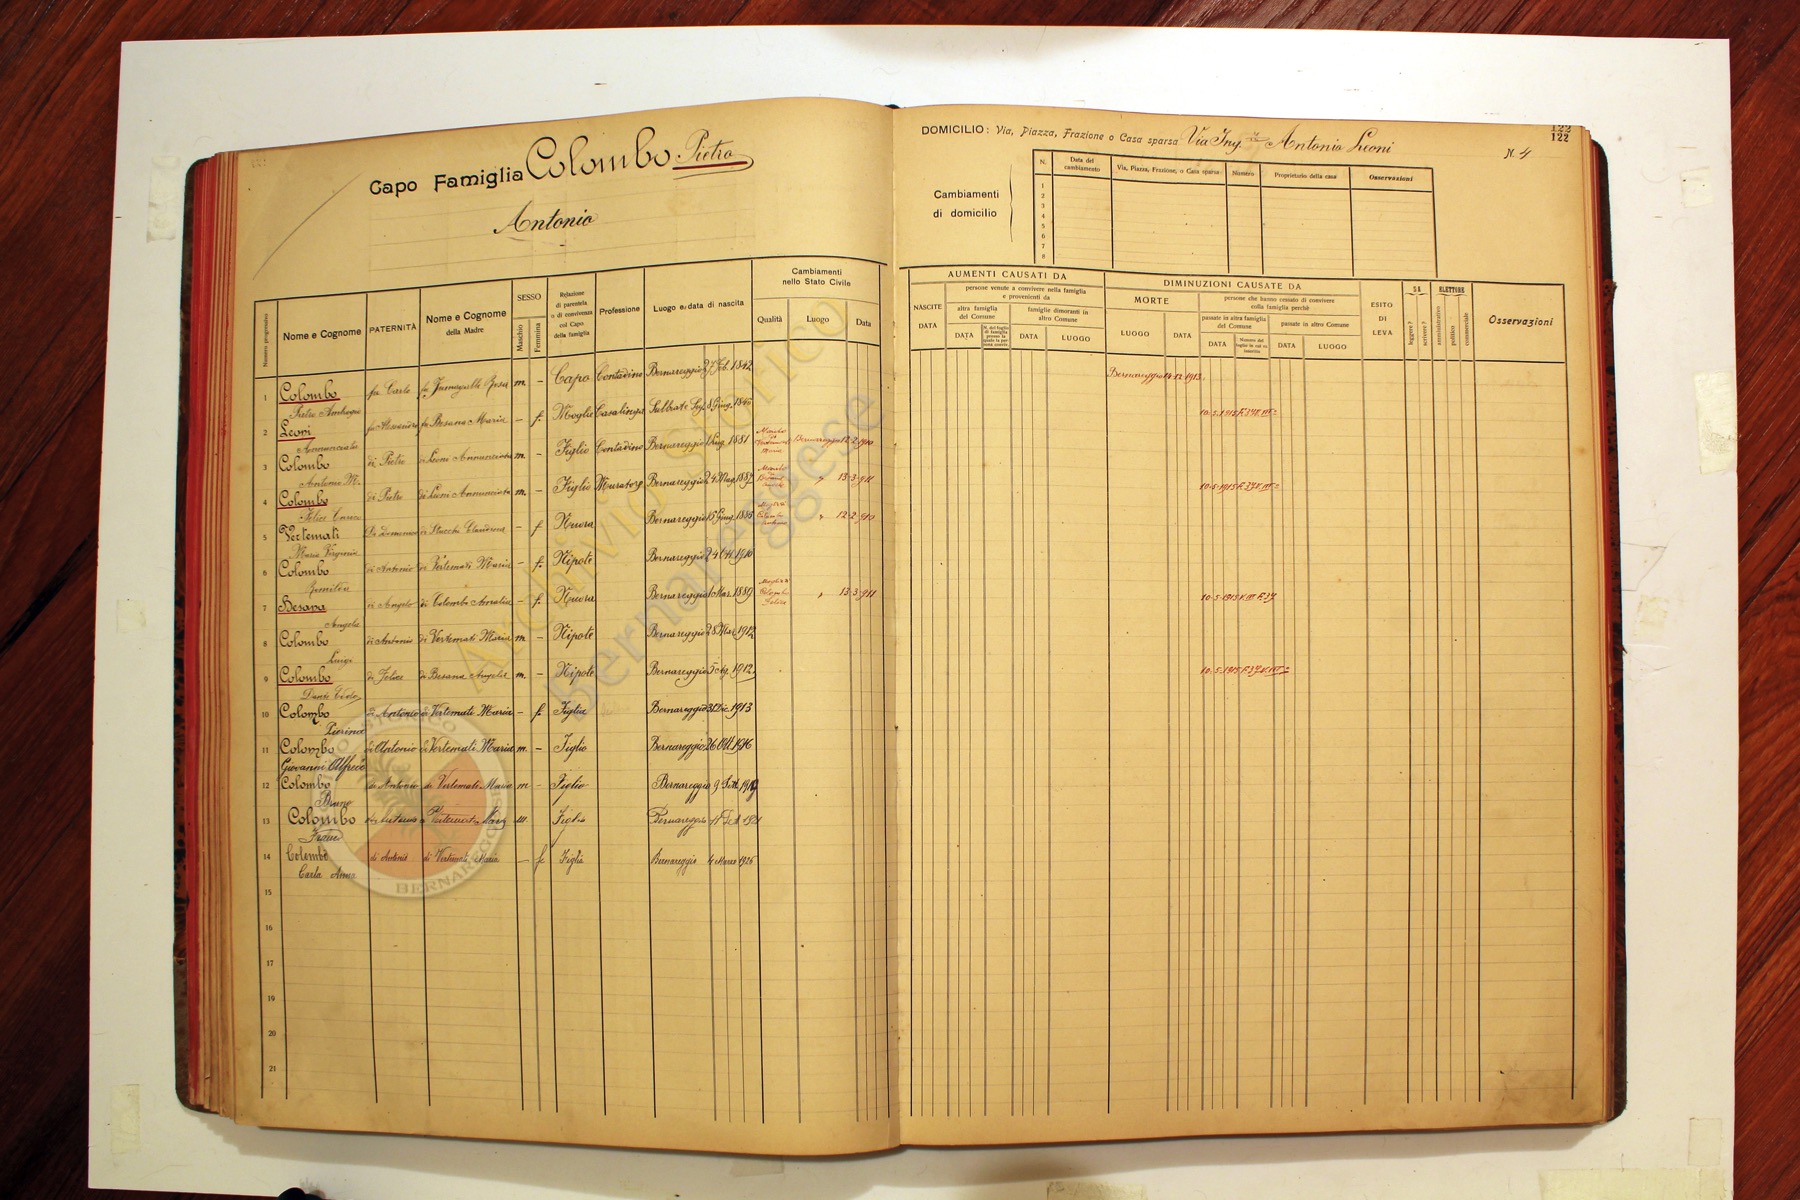 Capo Famiglia Colombo Pietro
Antonio
DOMICILIO: Via, Piazza, Frazione o Casa sparsa Via Ing. Antonio Leoni N. 4
122
122
Cambiamenti di domicilio
N. Data del cambiamento Via, Piazza, Frazione, o Casa sparsa Numero Proprietario della casa Osservazioni
1
2
3
4
5
6
7
8
Numero progressivo
Nome e Cognome
PATERNITÀ
Nome e Cognome della Madre
SESSO
Maschio
Femmina
Relazione di parentela o di convivenza col Capo della famiglia
Professione
Luogo e data di nascita
Cambiamenti nello Stato Civile
Qualità Luogo Data
AUMENTI CAUSATI DA
NASCITE DATA
persone venute a convivere nella famiglia e provenienti da
altra famiglia del Comune
famiglie dimoranti in altro Comune
DATA DATA LUOGO
DIMINUZIONI CAUSATE DA
MORTE
LUOGO DATA
persone che hanno cessato di convivere colla famiglia perchè
passate in altra famiglia del Comune
passate in altro Comune
DATA DATA LUOGO
ESITO DI LEVA
SA
leggere?
scrivere?
ELETTORE
amministrativo
politico
commerciale
Osservazioni
1 Colombo fu Carlo fu Fumagalli Rosa m. - Capo Contadino Bernareggio 27 Feb. 1842 Bernareggio 14-12-1913.
Pietro Ambrogio
2 Leoni fu Alessandro fu Besana Maria - f. Moglie Casalinga Sulbiate 8 Giug. 1846 10-5-1915
Annunciata
3 Colombo di Pietro di Leoni Annunciata m. - Figlio Contadino Bernareggio 1881 Bernareggio 12-2-1910
Antonio M.
4 Colombo di Pietro di Leoni Annunciata m. - Figlio Muratore Bernareggio 24 Mag. 1887 " 13-3-911 10-5-1915
Felice
5 Vertemati Di Domenico di Stucchi - f. Nuora Bernareggio 15 Giug. 1885 " 12-2-910
Maria Virginia
6 Colombo di Antonio di Vertemati Maria - f. Nipote Bernareggio 24 Ott. 1910
7 Besana di Angelo di Colombo Amalia - f. Nuora Bernareggio 1 Mar. 1889 Moglie di Colombo Felice " 13-3-911 10-5-1915
Angela
8 Colombo di Antonio di Vertemati Maria m. - Nipote Bernareggio 28 1912
Luigi
9 Colombo di Felice di Besana Angela m. - Nipote Bernareggio 5 Ag. 1912 10-5-1915
Dante
10 Colombo di Antonio di Vertemati Maria - f. Figlia Bernareggio 31 Dic. 1913
Pierina
11 Colombo di Antonio di Vertemati Maria m. - Figlio Bernareggio 26 Ott. 1916
Giovanni Alfredo
12 Colombo di Antonio di Vertemati Maria m - Figlio Bernareggio 9 1919
Bruno
13 Colombo di Antonio di Vertemati Maria m. Figlio Bernareggio 11 1921
14 Colombo di Antonio di Vertemati Maria - f. Figlia Bernareggio 4 Marzo 1926
Carla Anna
15
16
17
18
19
20
21
Archivio Storico
Bernareggese
BERNAREGGIO